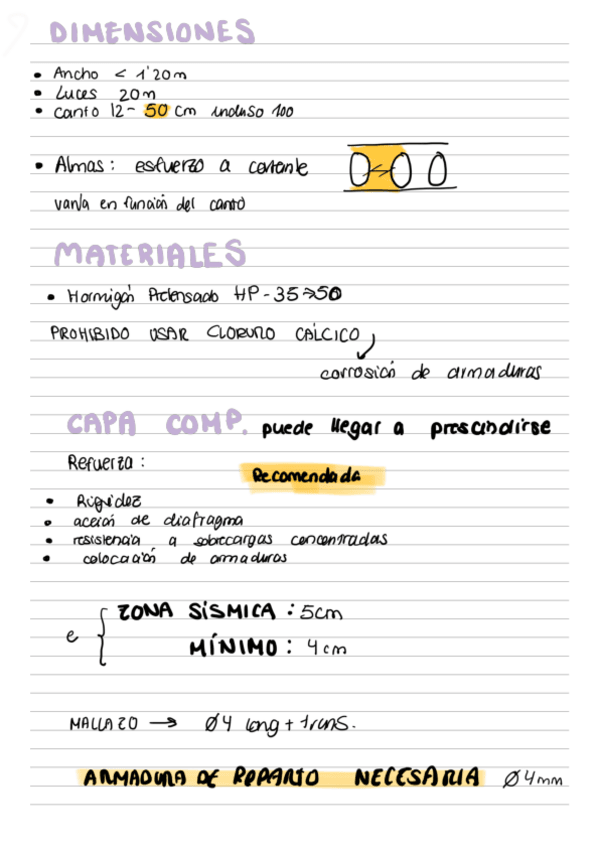 DIMENSIONES
• Ancho < 1'20m
• Luces 20m
• Canto 12 - 50 cm incluso 100
• Almas: esfuerzo a cortante
varía en función del canto
MATERIALES
• Hormigón Pretensado HP-35→50
PROHIBIDO USAR CLORURO CÁLCICO
corrosión de armaduras
CAPA COMP. puede llegar a prescindirse
Refuerza:
Recomendada
• Rigidez
• acción de diafragma
• resistencia a sobrecargas concentradas
• colocación de armaduras
e { ZONA SÍSMICA: 5cm
MÍNIMO: 4cm
MALLAZO → Ø4 long + trans.
ARMADURA DE REPARTO NECESARIA Ø4mm